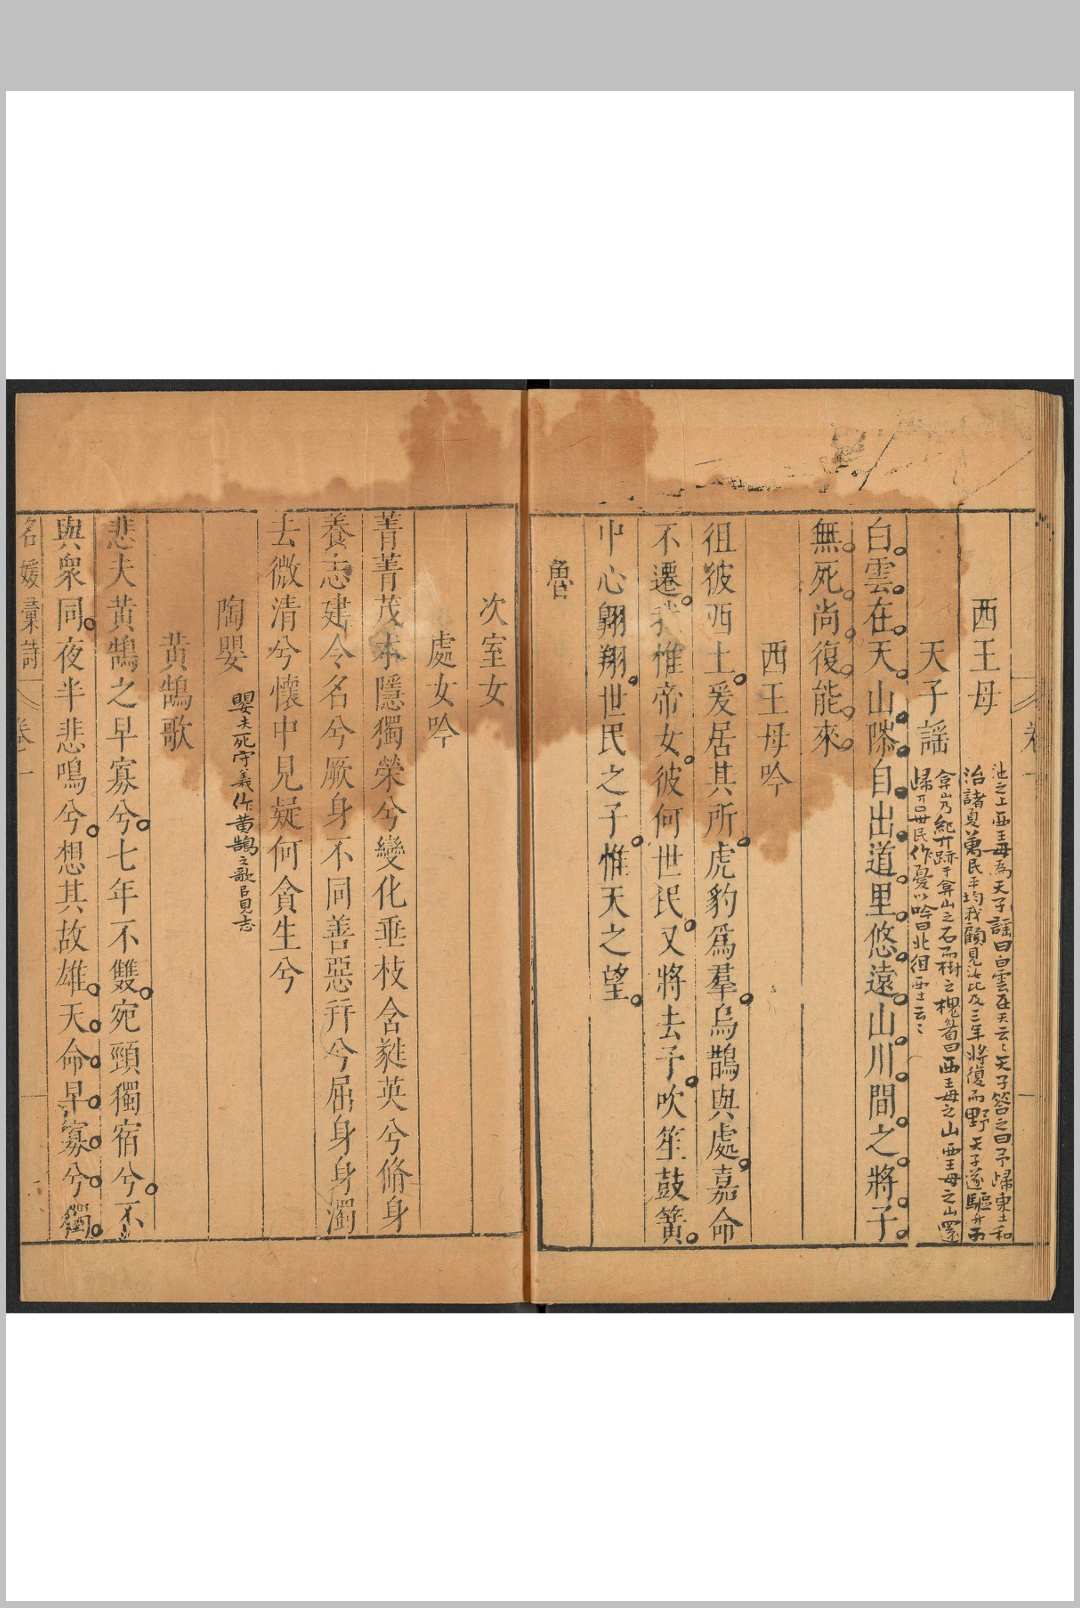 卷一
西王母
池之上西王母為天子謠曰白雲在天云云天子答之曰予歸東土和
治諸夏萬民平均我顧見汝比及三年將復而野天子遂驅升于
弇山乃紀丌跡于弇山之石而樹之槐眉曰西王母之山西王母之山還
歸丌世民作憂以吟曰比徂西土云云
天子謠
白雲在天山𨺗自出道里悠遠山川間之將子
無死尚復能來
西王母吟
徂彼西土爰居其所虎豹為羣烏鵲與處嘉命
不遷我惟帝女彼何世民又將去予吹笙鼓簧
中心翺翔世民之子惟天之望
魯
次室女
處女吟
菁菁茂木隱獨榮兮變化垂枝含蕤英兮脩身
養志建令名兮厥身不同善惡并兮屈身身濁
去微清兮懷中見疑何貪生兮
陶嬰
嬰夫死守義作黃鵠之歌㠯見志
黃鵠歌
悲夫黃鵠之早寡兮七年不雙宛頸獨宿兮不
與衆同夜半悲鳴兮想其故雄天命早寡兮獨
名媛彙詩 卷一